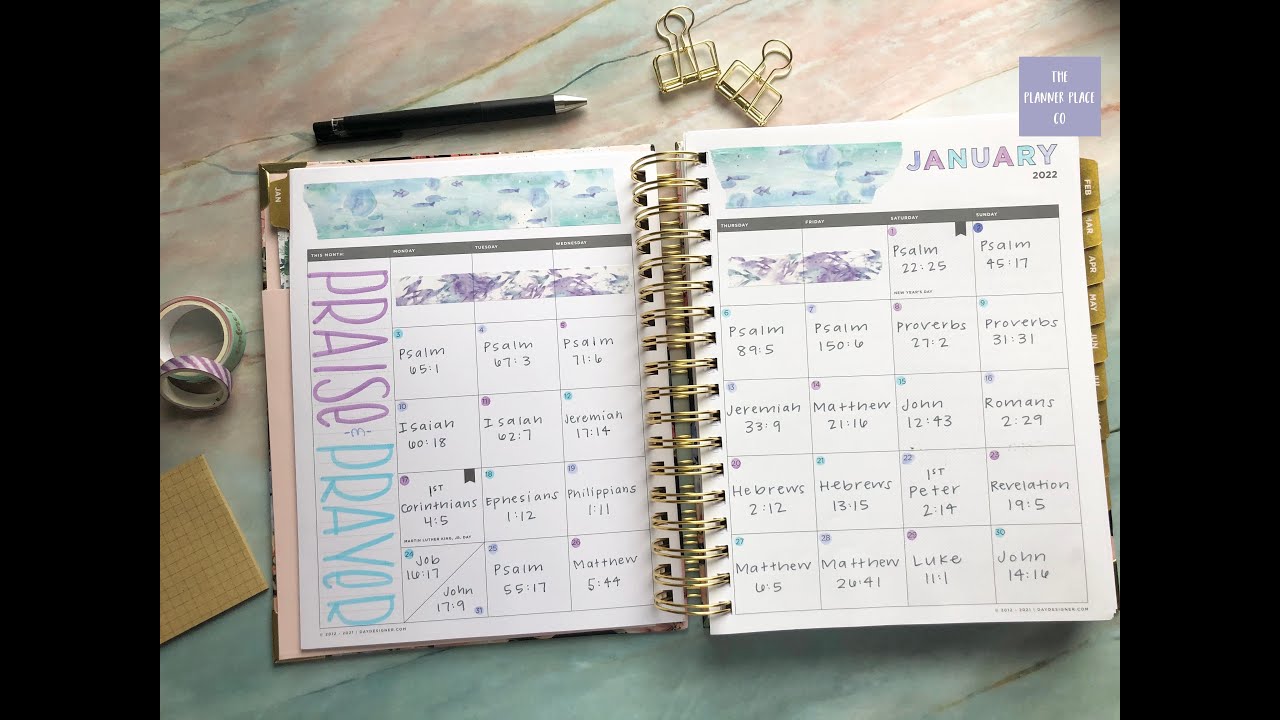 THE
PLANNER PLACE
CO
JANUARY
2022
JAN
FEB
MAR
APR
MAY
JUN
THIS MONTH:
MONDAY
TUESDAY
WEDNESDAY
THURSDAY
FRIDAY
SATURDAY
SUNDAY
PRAISE
&
PRAYER
1
Psalm
22:25
NEW YEAR'S DAY
2
Psalm
45:17
3
Psalm
65:1
4
Psalm
67:3
5
Psalm
71:6
6
Psalm
89:5
7
Psalm
150:6
8
Proverbs
27:2
9
Proverbs
31:31
10
Isaiah
60:18
11
Isaiah
62:7
12
Jeremiah
17:14
13
Jeremiah
33:9
14
Matthew
21:16
15
John
12:43
16
Romans
2:29
17
1ST
Corinthians
4:5
MARTIN LUTHER KING, JR. DAY
18
Ephesians
1:12
19
Philippians
1:11
20
Hebrews
2:12
21
Hebrews
13:15
22
1ST
Peter
2:14
23
Revelation
19:5
24
Job
16:17
John
17:9
31
25
Psalm
55:17
26
Matthew
5:44
27
Matthew
6:5
28
Matthew
26:41
29
Luke
11:1
30
John
14:16
© 2012 - 2021 | DAYDESIGNER.COM
© 2012 - 2021 | DAYDESIGNER.COM